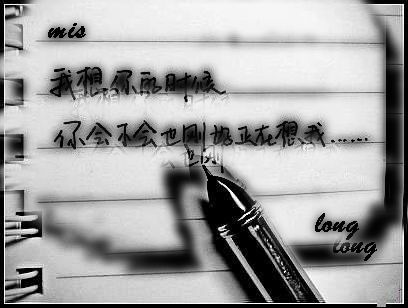 mis
我想你的时候
你会不会也刚好正在想我……
long
long